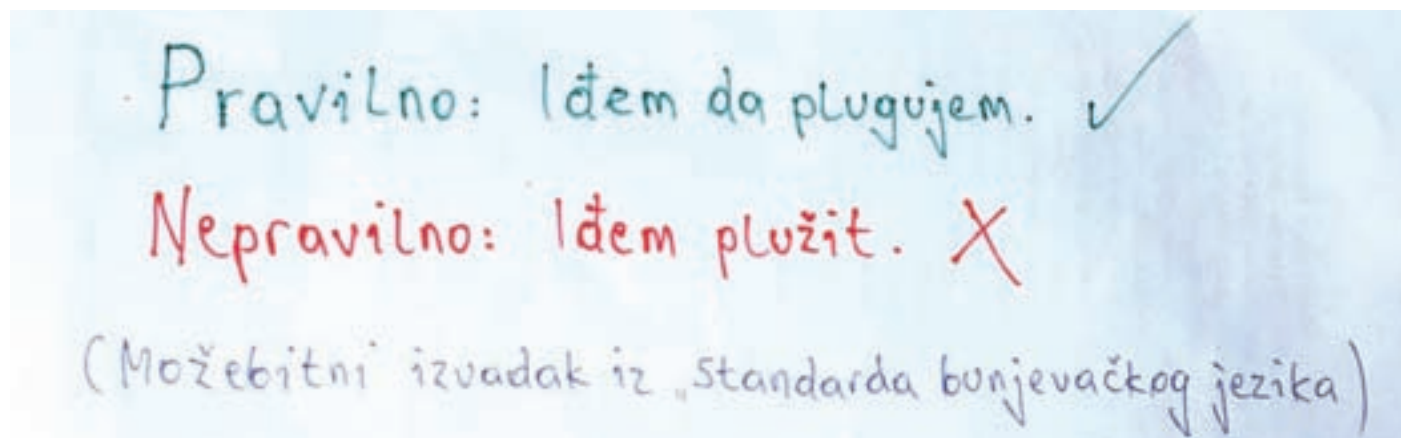 Pravilno: Iđem da plugujem. ✓
Nepravilno: Iđem plužit. X
(Možebitni izvadak iz „standarda bunjevačkog jezika)